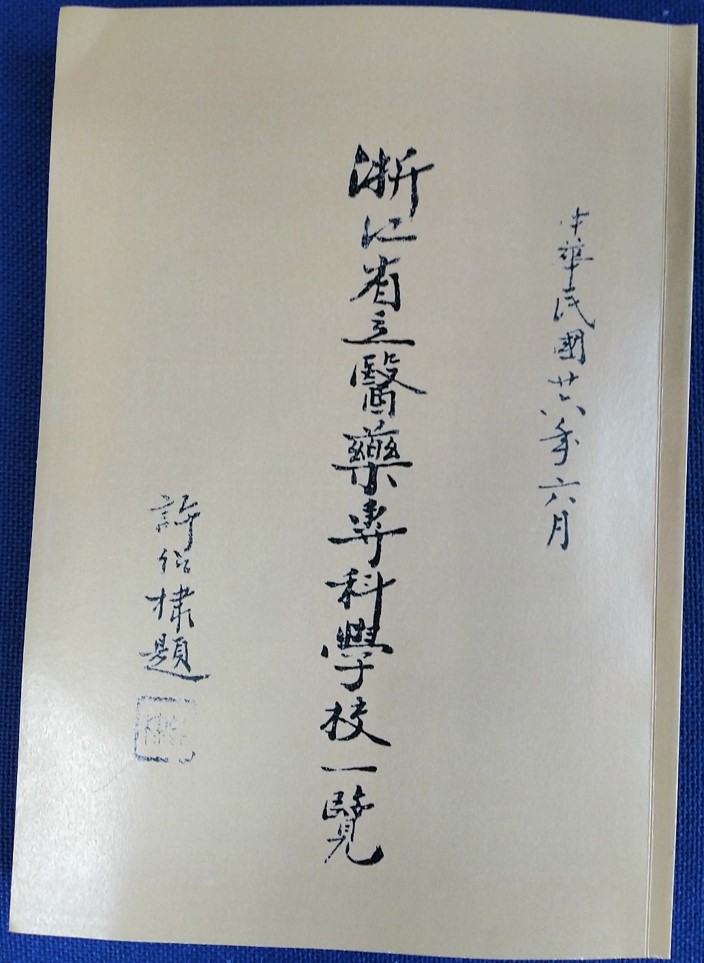 中華民國廿六年六月
浙江省立醫藥專科學校一覽
許紹棣題